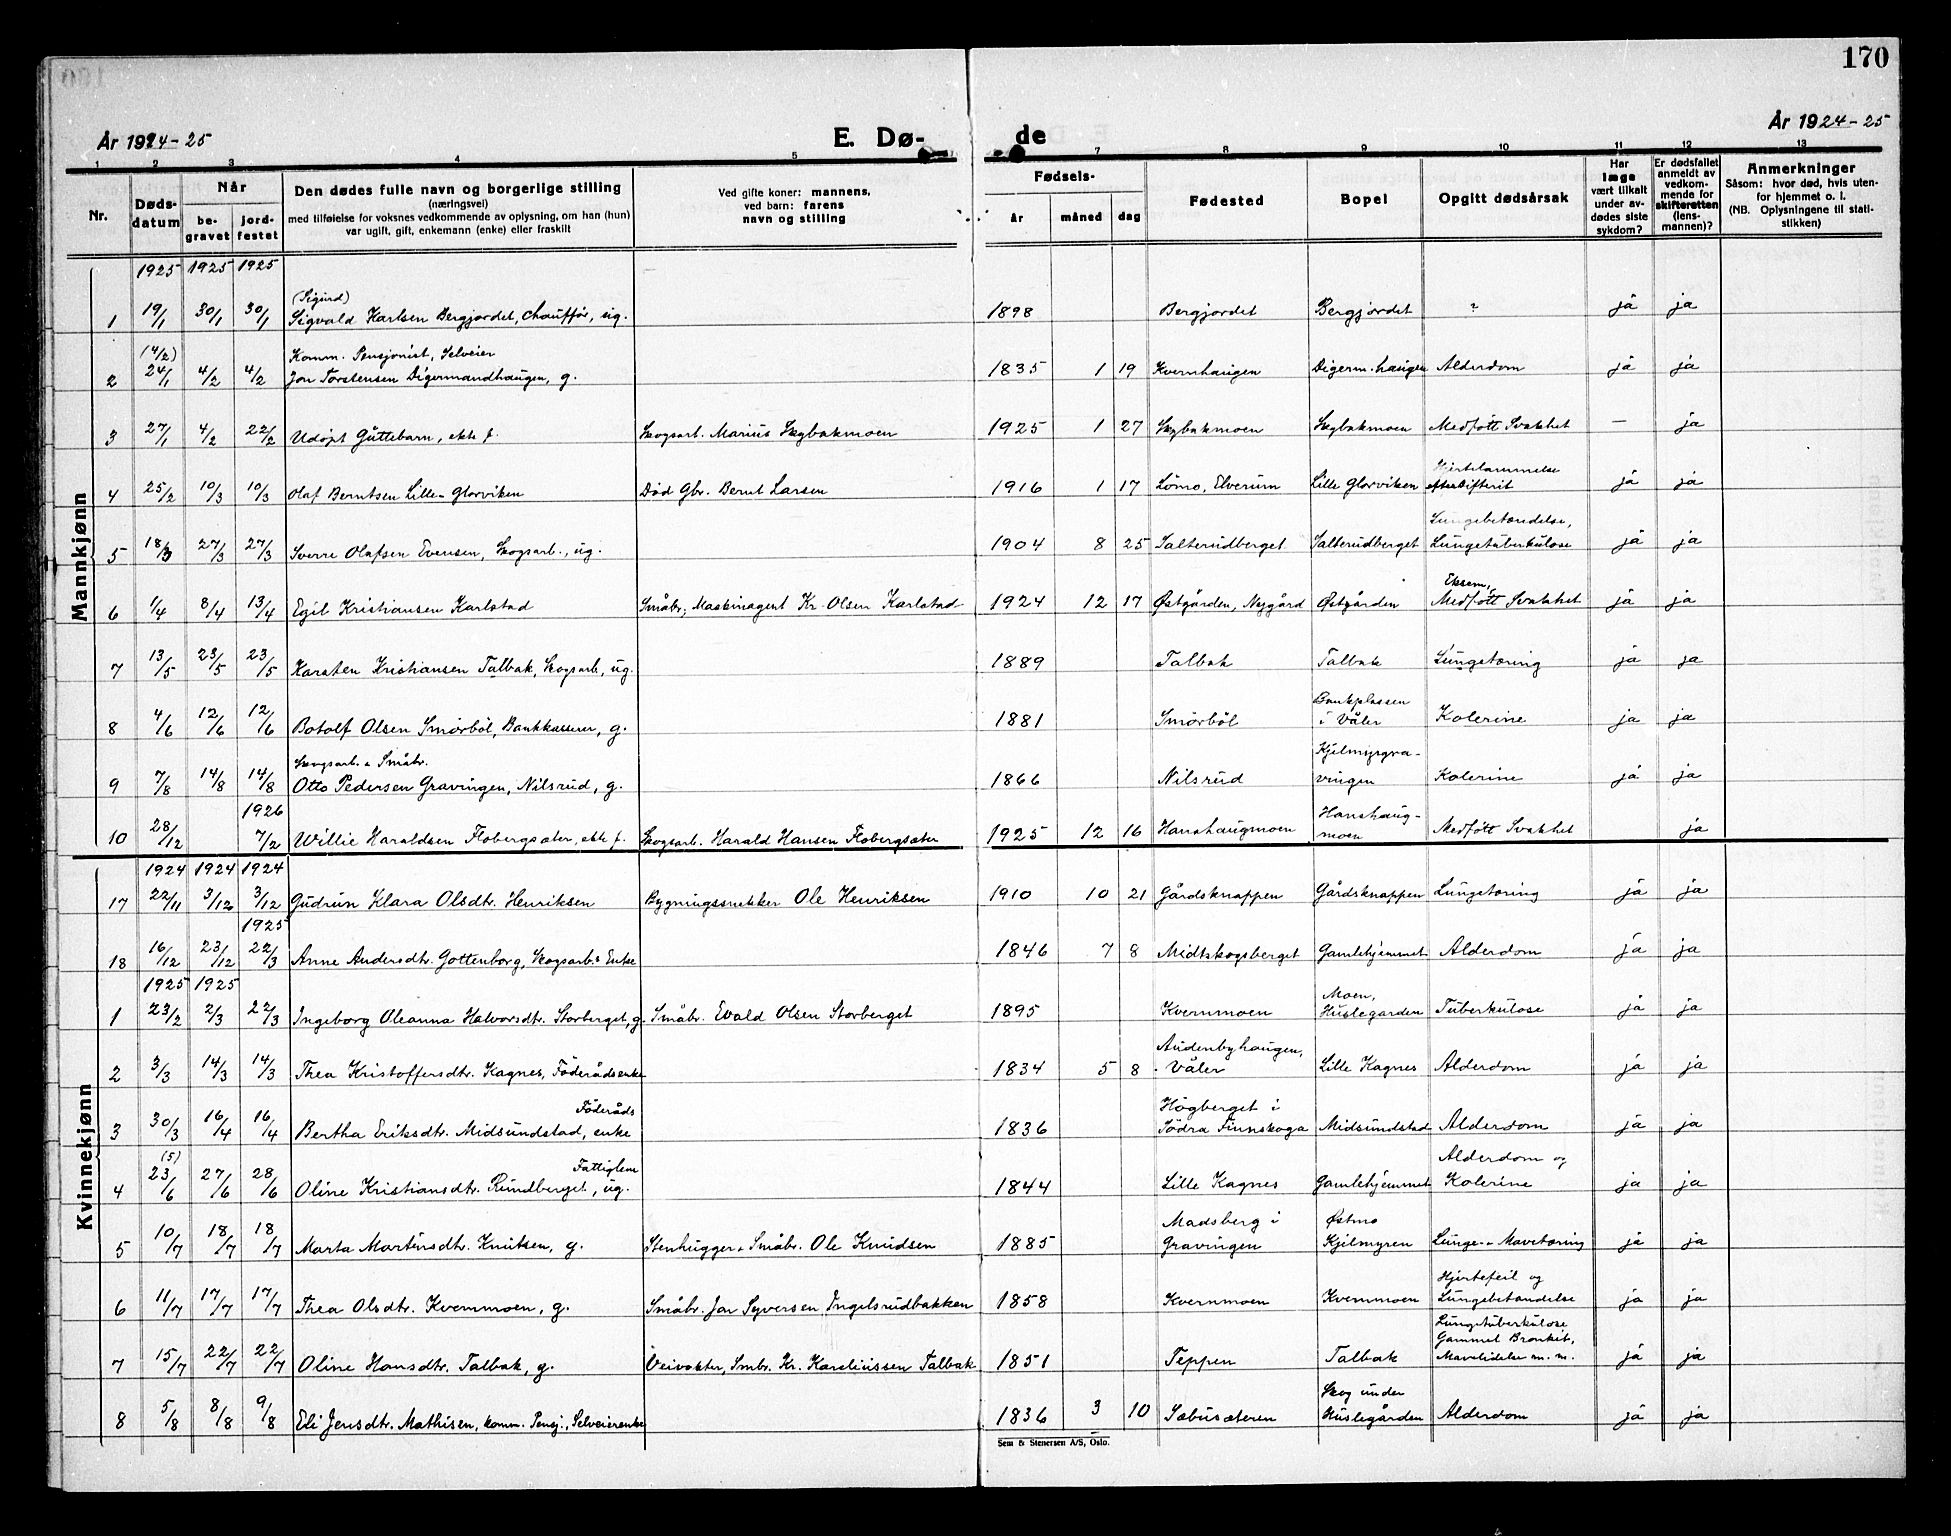 170
År 1924-25
E. Dø-
de
År 1924-25
1 2 3 4 5 7 8 9 10 11 12 13
Nr.
Døds-
datum
Når
be-
gravet
jord-
festet
Den dødes fulle navn og borgerlige stilling
(næringsvei)
med tilføielse for voksnes vedkommende av oplysning, om han (hun)
var ugift, gift, enkemann (enke) eller fraskilt
Ved gifte koner: mannens,
ved barn: farens
navn og stilling
Fødsels-
år måned dag
Fødested
Bopel
Opgitt dødsårsak
Har
læge
vært tilkalt
under av-
dødes siste
sykdom?
Er dødsfallet
anmeldt av
vedkom-
mende for
skifteretten
(lens-
mannen)?
Anmerkninger
Såsom: hvor død, hvis uten-
for hjemmet o. l.
(NB. Oplysningene til stati-
stikken)
Mannkjønn
1925 1925 1925
(Sigurd)
1 19/1 30/1 30/1 Sigvald Karlsen Bergjordet, chauffør, ug. 1898 Bergjordet Bergjordet ? ja ja
(4/2) Komm. Pensjonist, Selveier
2 24/1 4/2 4/2 Jon Torstensen Digermandhaugen, g. 1835 1 19 Kvernhaugen Digerm.haugen Alderdom ja ja
3 27/1 4/2 22/2 Udøpt Guttebarn, ekte f. Skogsarb. Marius Skybakmoen 1925 1 27 Skybakmoen Skybakmoen Medføtt Svakhet — ja
Hjertelammelse
4 25/2 10/3 10/3 Olaf Berntsen Lille-Glorviken Död Gbr. Bernt Larsen 1916 1 17 Lömo, Elverum Lille Glorviken efter Difterit ja ja
Lungebetændelse,
5 18/3 27/3 27/3 Sverre Olafsen Evensen, Skogsarb., ug. 1904 8 25 Salterudberget Salterudberget Lungetuberkulose ja ja
Eksem,
6 1/4 8/4 13/4 Egil Kristiansen Karlstad Småbr., Maskinagent Kr. Olsen Karlstad 1924 12 17 Østgården, Nygård Østgården Medføtt Svakhet ja ja
7 13/5 23/5 23/5 Karsten Kristiansen Talbak, Skogsarb., ug. 1889 Talbak Talbak Lungetæring ja ja
Bankplassen
8 4/6 12/6 12/6 Botolf Olsen Smörböl, Bankkasserer, g. 1881 Smörböl i Våler Kolerine ja ja
Skogsarb. & Småbr. Kjelmyrgra-
9 7/8 14/8 14/8 Otto Pedersen Gravingen, Nilsrud, g. 1866 Nilsrud vingen Kolerine ja ja
1926 Hanshaug-
10 28/12 7/2 Willie Haraldsen Flobergsæter, ekte f. Skogsarb. Harald Hansen Flobergsæter 1925 12 16 Hanshaugmoen moen Medføtt Svakhet ja
Kvinnekjønn
1924 1924 1924
17 22/11 3/12 3/12 Gudrun Klara Olsdtr. Henriksen Bygningssnekker Ole Henriksen 1910 10 21 Gårdsknappen Gårdsknappen Lungetæring ja ja
1925
18 16/12 23/12 22/3 Anne Andersdtr. Gottenborg, Skogsarb.s Enke 1846 7 8 Midtskogsberget Gamlehjemmet Alderdom ja ja
1925 1925 Moen,
1 23/2 2/3 22/3 Ingeborg Oleanna Halvorsdtr. Storberget, g. Småbr. Evald Olsen Storberget 1895 Kvernmoen Huslegarden Tuberkulose ja ja
Audenbyhaugen,
2 3/3 14/3 14/3 Thea Kristoffersdtr. Kagnes, Föderådsenke 1834 5 8 Våler Lille Kagnes Alderdom ja ja
Föderåds Högberget i
3 30/3 16/4 16/4 Bertha Eriksdtr. Midsundstad, enke 1836 Södra Finnskoga Midsundstad Alderdom ja ja
(5) Fattiglem Alderdom og
4 23/6 27/6 28/6 Oline Kristiansdtr. Rundberget, ug. 1844 Lille Kagnes Gamlehjemmet Kolerine ja ja
Madsberg i Østmo
5 10/7 18/7 18/7 Marta Martinsdtr. Knutsen, g. Stenhugger & Småbr. Ole Knudsen 1885 Gravingen Kjelmyren Lunge- & Mavetæring ja ja
Hjertefeil og
6 11/7 17/7 17/7 Thea Olsdtr. Kvernmoen, g. Småbr. Jon Syversen Ingelsrudbakken 1858 Kvernmoen Kvernmoen Lungebetændelse ja ja
Lungetuberkulose
Gammel Bronkit,
7 15/7 22/7 22/7 Oline Hansdtr. Talbak, g. Veivokter, Smbr. Kr. Karelinssen Talbak 1851 Teppen Talbak Mavelidelse m. m. ja ja
Skog under
8 5/8 8/8 9/8 Eli Jensdtr. Mathisen, komm. Pensj., Selveierenke 1836 3 10 Sæbusæteren Huslegården Alderdom ja ja
Sem & Stenersen A/S, Oslo.